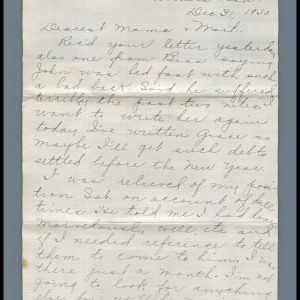 Dec. 31, 1930
Dearest Mama & Mart.
Rec'd your letter yesterday
also one from Bess saying
John was bed fast with such
a bad back. Said he suffered
terribly the past two nites. I
want to write her again
today. I've written Grace so
maybe I'll get such debts
settled before the New Year.
I was relieved of my posi-
tion Sat. on account of dull
times. He told me I had done
marvelously well etc and
if I needed reference to tell
them to come to him. I was
there just a month. I'm not
going to look for anything